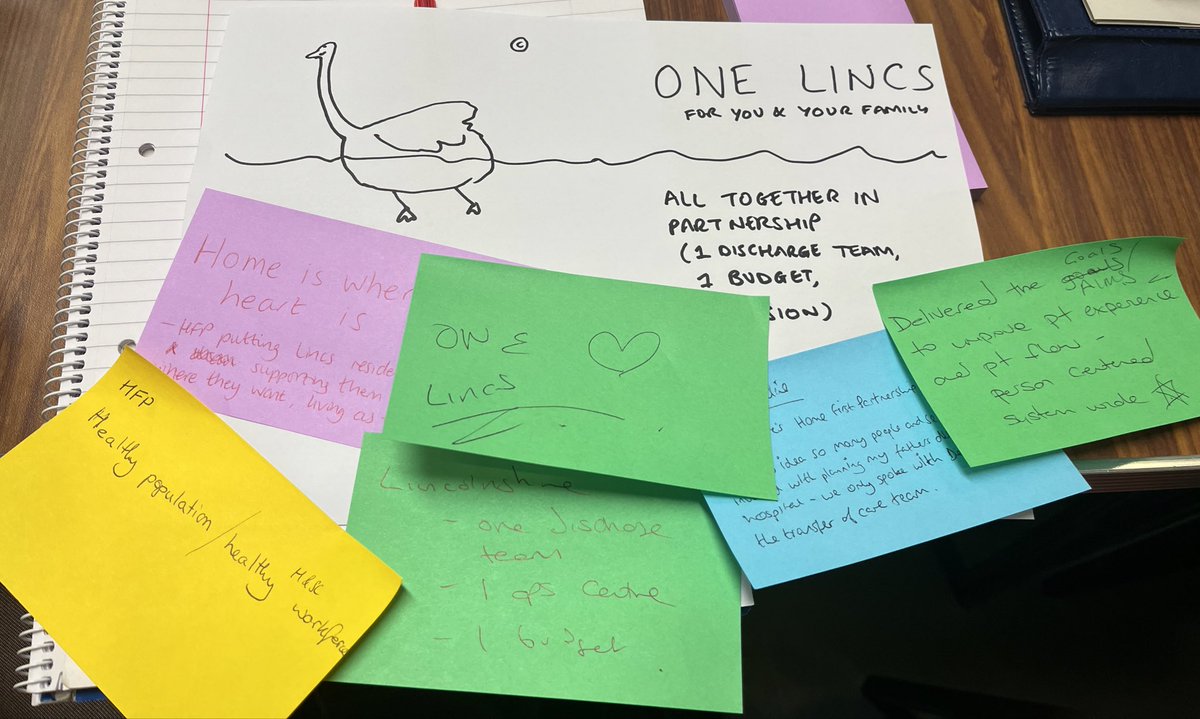 ©
ONE LINCS
FOR YOU & YOUR FAMILY
ALL TOGETHER IN
PARTNERSHIP
(1 DISCHARGE TEAM,
1 BUDGET,
SION)
Home is wher
heart is
- HFP putting Lincs reside
supporting them
where they want, living as -
ONE
Lincs
Delivered the Goals/
AIMS
to improve pt experience
and pt flow -
person centered
system wide
Home first Partnership
idea so many people and se
with planning my fathers d
hospital - we only spoke with D
the transfer of care team.
HFP
Healthy population/healthy H&SC
workforce
Lincolnshire
- one discharge
team
- 1 ops centre
- 1 budget